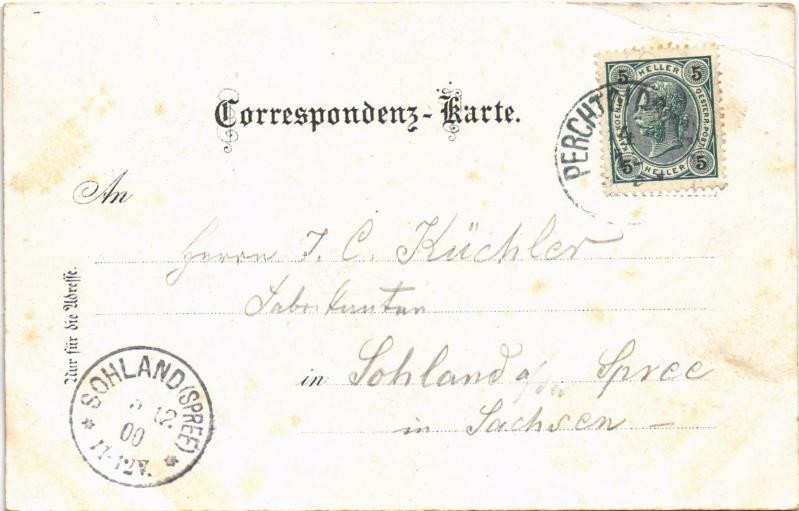 Correspondenz-Karte.
PERCHT
5 HELLER 5
OESTERR. POST
5 HELLER 5
An
Herrn J. C. Küchler
Fabrikanten
in Sohland a/der Spree
in Sachsen –
Nur für die Adresse.
SOHLAND (SPREE)
12
00
11-12V.
* *